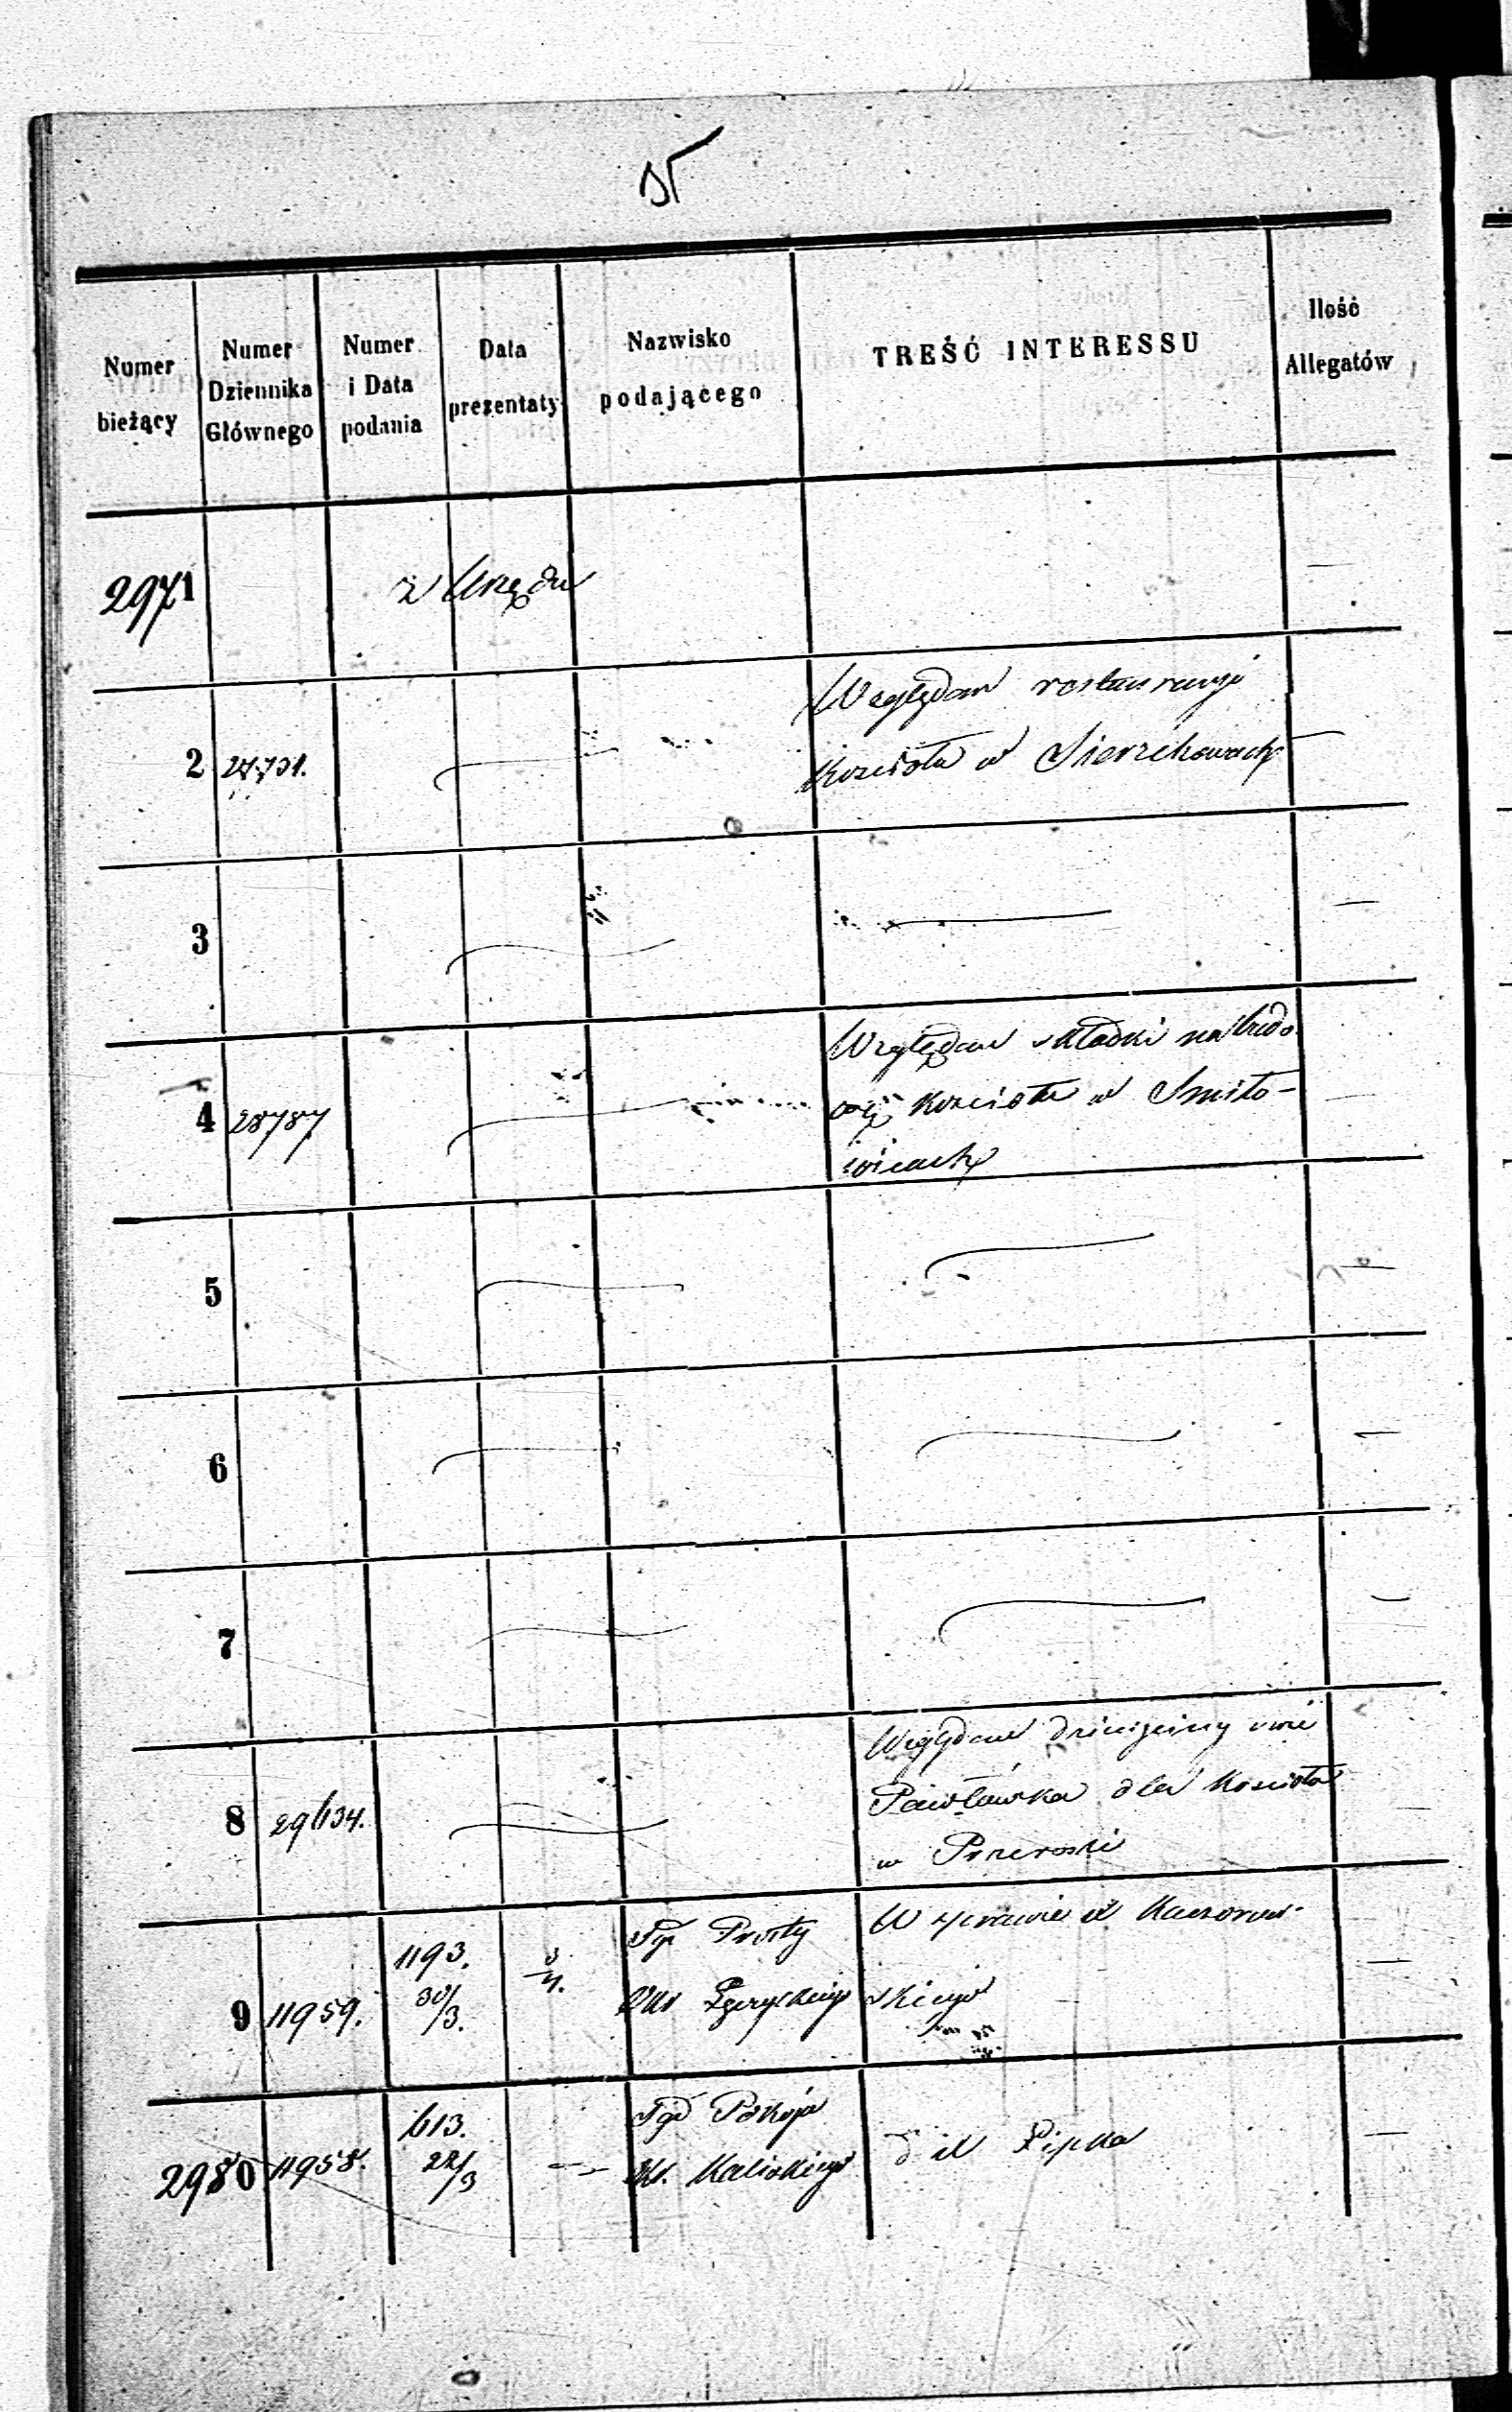 Numer bieżący
Numer Dziennika Głównego
Numer i Data podania
Data prezentaty
Nazwisko podającego
TREŚĆ INTERESSU
Ilość Allegatów
2971 z Urzędu —
2 Względem restauracyi
kościoła w Sierzchowach —
3 —
4 28787 Względem składki na budo
wę kościoła w Smiło-
wicach —
5 —
6 —
7 —
8 29634. Względem dziesięciny wsi
Pawłówka dla kościoła
w Przerośli —
9 11959. 1193. 30/3. 3/4. Sąp Prosty W sprawie
skiego —
2980 11958. 613. 22/3 — Sąd Pokoju
Kaliskiego d il Lipka —